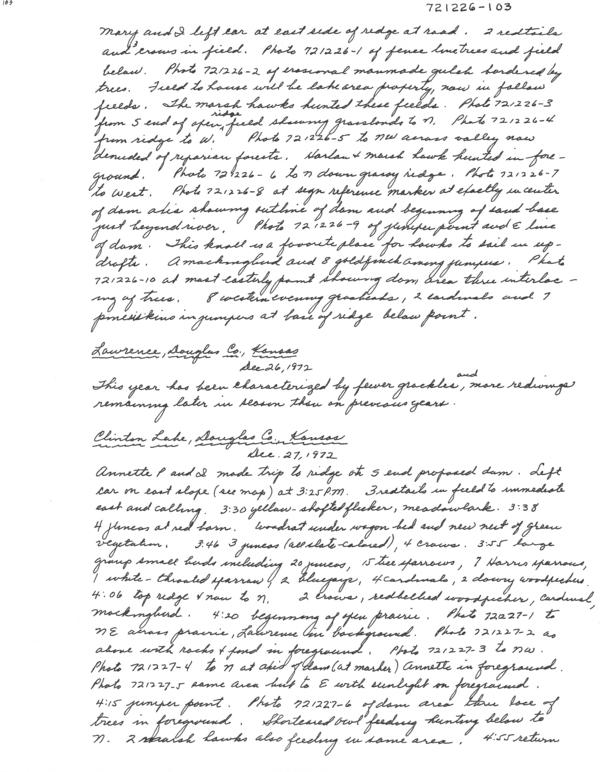 103
721226-103
Mary and I left car at east side of ridge at road. 2 redtails
and 3 crows in field. Photo 721226-1 of fence line trees and field
below. Photo 721226-2 of erosional manmade gulch bordered by
trees. Field to house will be lake area property, now in fallow
fields. The marsh hawks hunted these fields. Photo 721226-3
from S end of open ridge field showing grasslands to N. Photo 721226-4
from ridge to W. Photo 721226-5 to NW across valley now
denuded of riparian forests. Harlan & marsh hawk hunted in fore-
ground. Photo 721226-6 to N down grassy ridge. Photo 721226-7
to West. Photo 721226-8 at sign reference marker at exactly in center
of dam axis showing outline of dam and beginning of sand base
just beyond river. Photo 721226-9 of juniper point and E line
of dam. This knoll is a favorite place for hawks to sail in up-
drafts. A mockingbird and 8 goldfinch among junipers. Photo
721226-10 at most easterly point showing dam area thru interlac-
ing of trees. 8 western evening grosbeaks, 2 cardinals and 7
pine siskins in junipers at base of ridge below point.
Lawrence, Douglas Co., Kansas
Dec. 26, 1972
This year has been characterized by fewer grackles, and more redwings
remaining later in season than on previous years.
Clinton Lake, Douglas Co. Kansas
Dec. 27, 1972
Annette P and I made trip to ridge at S end proposed dam. Left
car on east slope (see map) at 3:25 PM. 3 redtails in field to immediate
east and calling. 3:30 yellow-shafted flicker, meadowlark. 3:38
4 juncos at red barn. Woodrat under wagon bed and new nest of green
vegetation. 3:46 3 juncos (all slate-colored), 4 crows. 3:55 large
group small birds including 20 juncos, 15 tree sparrows, 7 Harris sparrows,
1 white-throated sparrow, 2 bluejays, 4 cardinals, 2 downy woodpeckers.
4:06 top ridge & now to N. 2 crows, redbellied woodpecker, cardinal,
mockingbird. 4:20 beginning of open prairie. Photo 721227-1 to
NE across prairie, Lawrence in background. Photo 721227-2 as
above with rocks & pond in foreground. Photo 721227-3 to NW.
Photo 721227-4 to N at axis of dam (at marker) Annette in foreground.
Photo 721227-5 same area but to E with sunlight on foreground.
4:15 juniper point. Photo 721227-6 of dam area thru lace of
trees in foreground. Shorteared owl feeding hunting below to
N. 2 marsh hawks also feeding in same area. 4:55 return